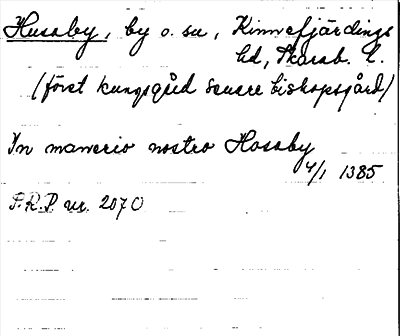 Husaby, by o. sn, Kinnefjärdings
hd, Skarab. l.
(först kungsgård senare biskopsgård)
In manerio nostro Hosaby
4/1 1385
P.R.P nr. 2070